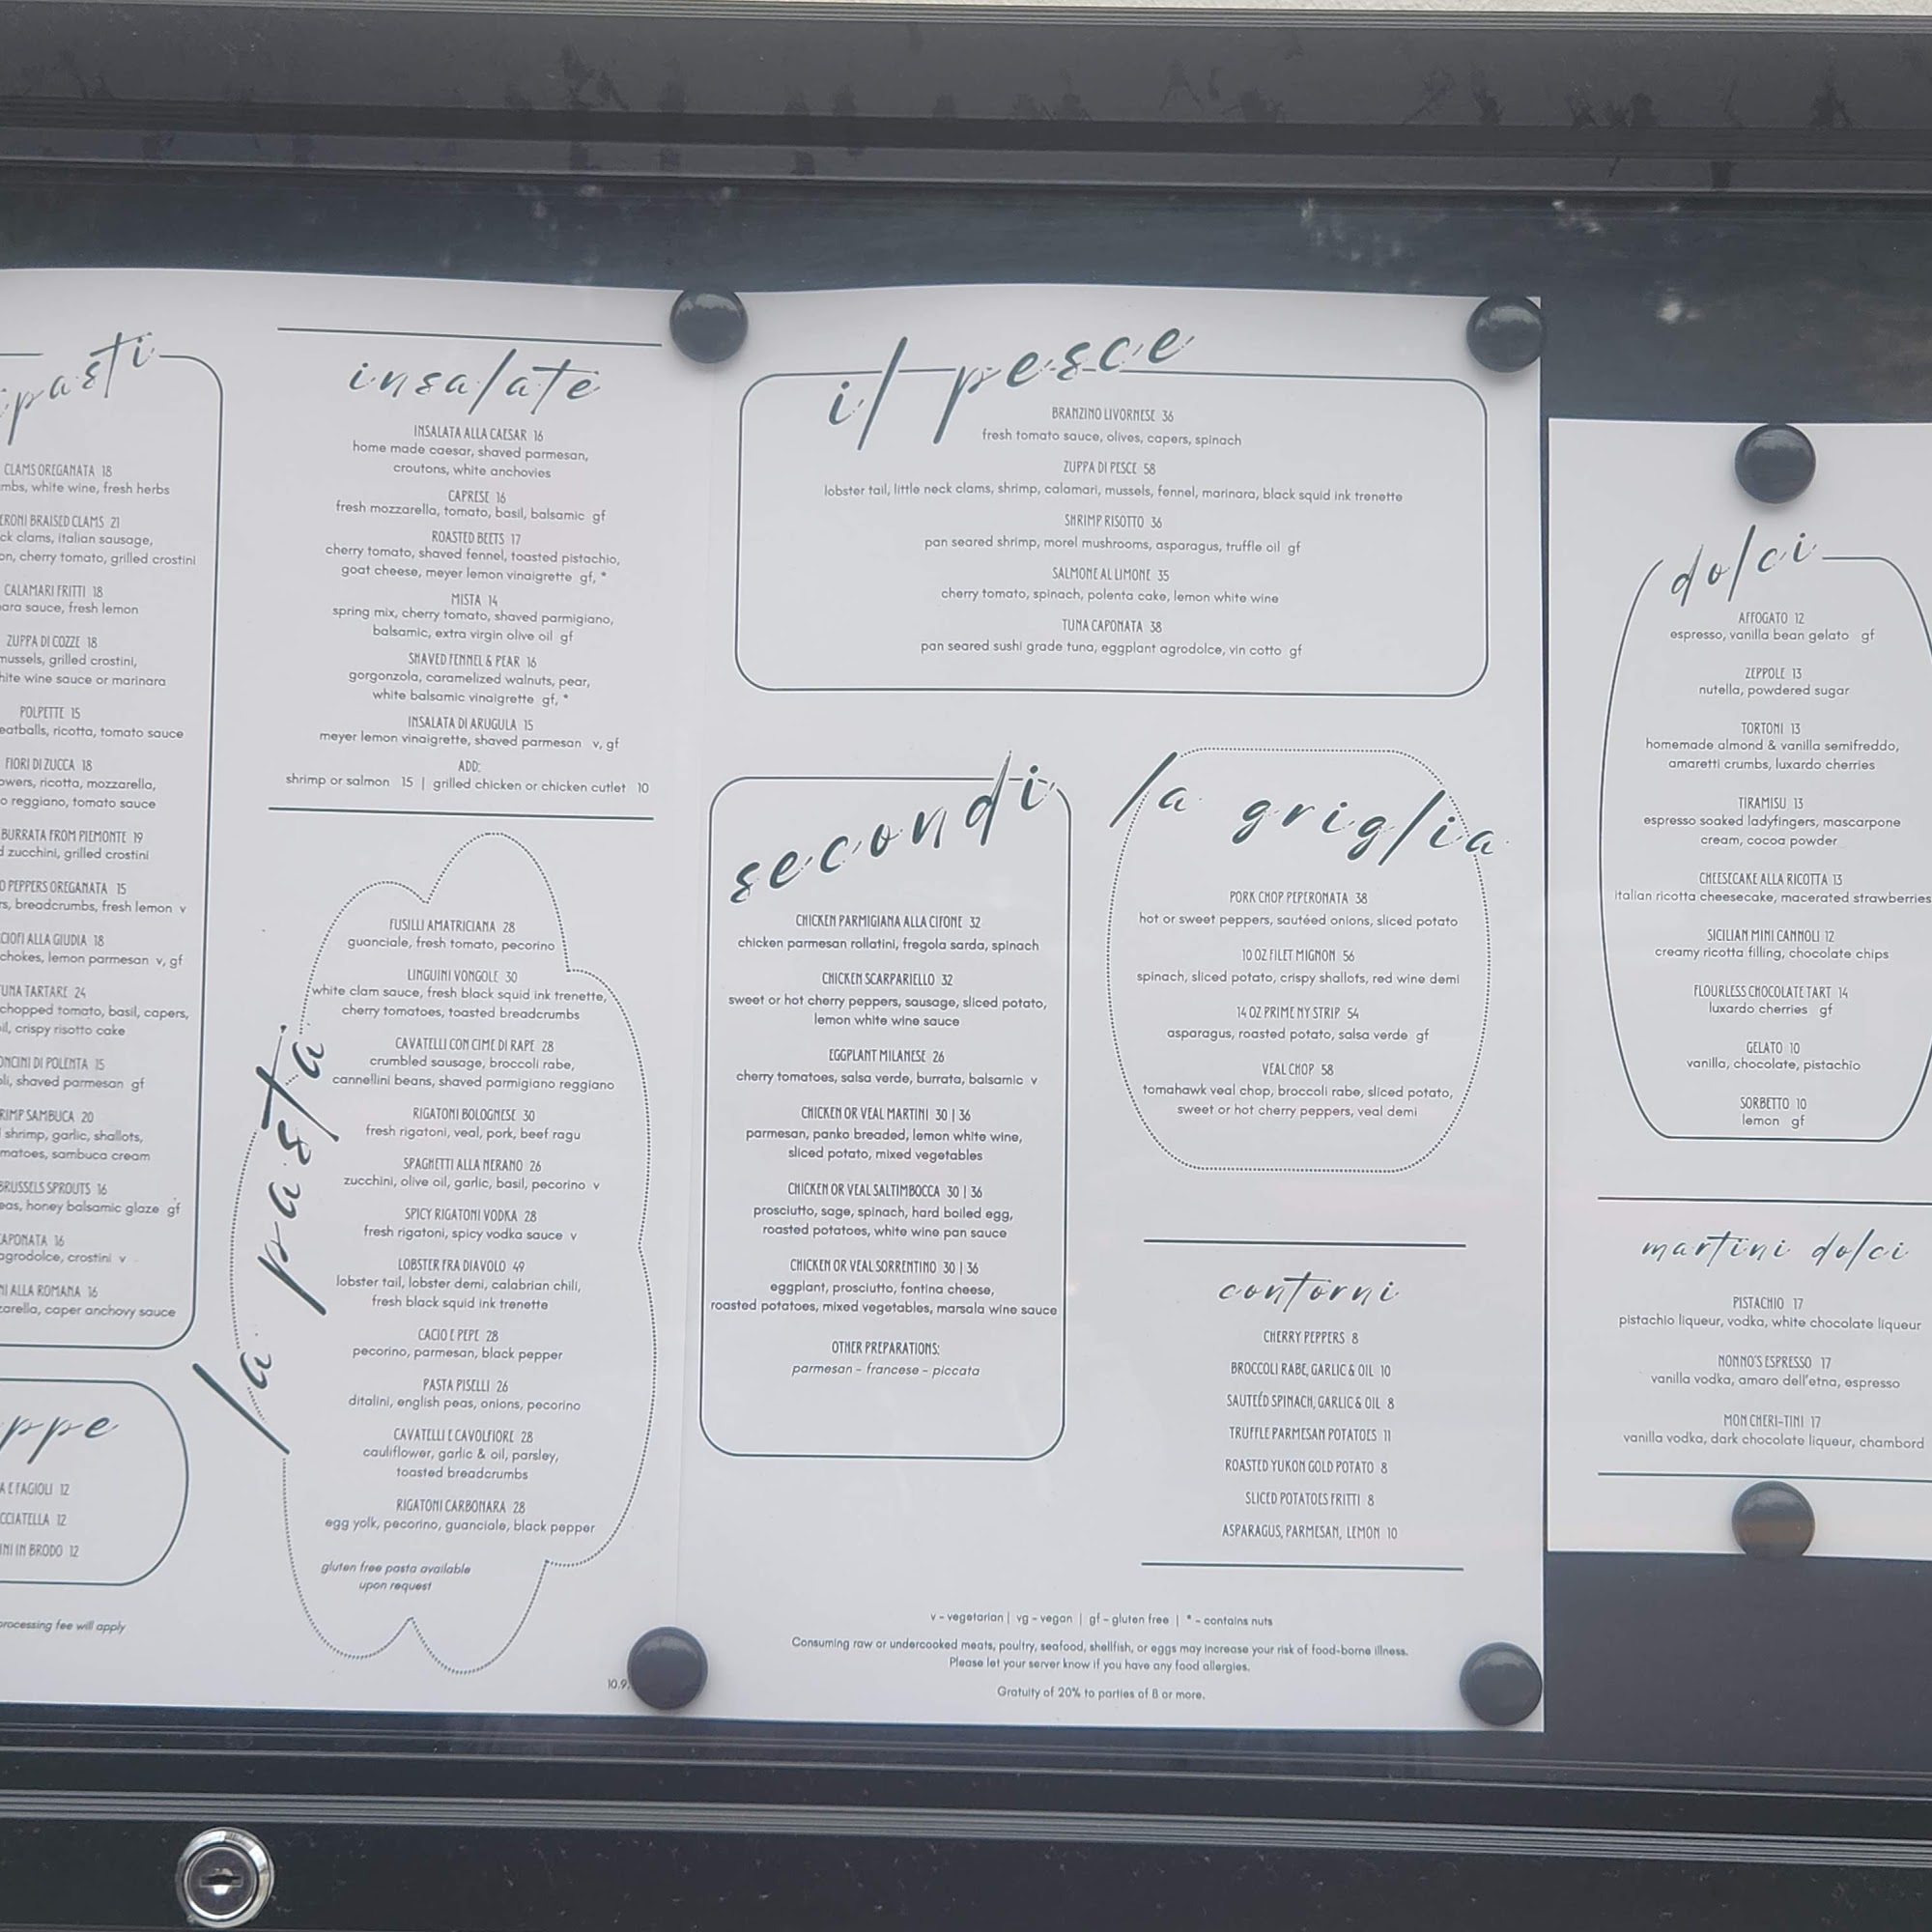 CLAMS OREGANATA 18
white wine, fresh herbs
BRAISED CLAMS 21
clams, italian sausage,
cherry tomato, grilled crostini
CALAMARI FRITTI 18
sauce, fresh lemon
ZUPPA DI COZZE 18
mussels, grilled crostini,
wine sauce or marinara
POLPETTE 15
ricotta, tomato sauce
FIORI DI ZUCCA 18
ricotta, mozzarella,
reggiano, tomato sauce
BURRATA FROM PIEMONTE 19
zucchini, grilled crostini
PEPPERS OREGANATA 15
breadcrumbs, fresh lemon v
ALLA GIUDIA 18
lemon parmesan v, gf
TARTARE 24
chopped tomato, basil, capers,
crispy risotto cake
DI POLENTA 15
shaved parmesan gf
SAMBUCA 20
shrimp, garlic, shallots,
sambuca cream
BRUSSELS SPROUTS 16
honey balsamic glaze gf
16
agrodolce, crostini v
ALLA ROMANA 16
caper anchovy sauce
E FAGIOLI 12
12
IN BRODO 12
processing fee will apply
insalate
INSALATA ALLA CAESAR 16
home made caesar, shaved parmesan,
croutons, white anchovies
CAPRESE 16
fresh mozzarella, tomato, basil, balsamic gf
ROASTED BEETS 17
cherry tomato, shaved fennel, toasted pistachio,
goat cheese, meyer lemon vinaigrette gf, *
MISTA 14
spring mix, cherry tomato, shaved parmigiano,
balsamic, extra virgin olive oil gf
SHAVED FENNEL & PEAR 16
gorgonzola, caramelized walnuts, pear,
white balsamic vinaigrette gf, *
INSALATA DI ARUGULA 15
meyer lemon vinaigrette, shaved parmesan v, gf
ADD:
shrimp or salmon 15 | grilled chicken or chicken cutlet 10
la pasta
FUSILLI AMATRICIANA 28
guanciale, fresh tomato, pecorino
LINGUINI VONGOLE 30
white clam sauce, fresh black squid ink trenette,
cherry tomatoes, toasted breadcrumbs
CAVATELLI CON CIME DI RAPE 28
crumbled sausage, broccoli rabe,
cannellini beans, shaved parmigiano reggiano
RIGATONI BOLOGNESE 30
fresh rigatoni, veal, pork, beef ragu
SPAGHETTI ALLA NERANO 26
zucchini, olive oil, garlic, basil, pecorino v
SPICY RIGATONI VODKA 28
fresh rigatoni, spicy vodka sauce v
LOBSTER FRA DIAVOLO 49
lobster tail, lobster demi, calabrian chili,
fresh black squid ink trenette
CACIO E PEPE 28
pecorino, parmesan, black pepper
PASTA PISELLI 26
ditalini, english peas, onions, pecorino
CAVATELLI E CAVOLFIORE 28
cauliflower, garlic & oil, parsley,
toasted breadcrumbs
RIGATONI CARBONARA 28
egg yolk, pecorino, guanciale, black pepper
gluten free pasta available
upon request
10.9.
il pesce
BRANZINO LIVORNESE 36
fresh tomato sauce, olives, capers, spinach
ZUPPA DI PESCE 58
lobster tail, little neck clams, shrimp, calamari, mussels, fennel, marinara, black squid ink trenette
SHRIMP RISOTTO 36
pan seared shrimp, morel mushrooms, asparagus, truffle oil gf
SALMONE AL LIMONE 35
cherry tomato, spinach, polenta cake, lemon white wine
TUNA CAPONATA 38
pan seared sushi grade tuna, eggplant agrodolce, vin cotto gf
secondi
CHICKEN PARMIGIANA ALLA CIFONE 32
chicken parmesan rollatini, fregola sarda, spinach
CHICKEN SCARPARIELLO 32
sweet or hot cherry peppers, sausage, sliced potato,
lemon white wine sauce
EGGPLANT MILANESE 26
cherry tomatoes, salsa verde, burrata, balsamic v
CHICKEN OR VEAL MARTINI 30 | 36
parmesan, panko breaded, lemon white wine,
sliced potato, mixed vegetables
CHICKEN OR VEAL SALTIMBOCCA 30 | 36
prosciutto, sage, spinach, hard boiled egg,
roasted potatoes, white wine pan sauce
CHICKEN OR VEAL SORRENTINO 30 | 36
eggplant, prosciutto, fontina cheese,
roasted potatoes, mixed vegetables, marsala wine sauce
OTHER PREPARATIONS:
parmesan – francese – piccata
la griglia
PORK CHOP PEPERONATA 38
hot or sweet peppers, sautéed onions, sliced potato
10 OZ FILET MIGNON 56
spinach, sliced potato, crispy shallots, red wine demi
14 OZ PRIME NY STRIP 54
asparagus, roasted potato, salsa verde gf
VEAL CHOP 58
tomahawk veal chop, broccoli rabe, sliced potato,
sweet or hot cherry peppers, veal demi
contorni
CHERRY PEPPERS 8
BROCCOLI RABE, GARLIC & OIL 10
SAUTEÉD SPINACH, GARLIC & OIL 8
TRUFFLE PARMESAN POTATOES 11
ROASTED YUKON GOLD POTATO 8
SLICED POTATOES FRITTI 8
ASPARAGUS, PARMESAN, LEMON 10
v – vegetarian | vg – vegan | gf – gluten free | * – contains nuts
Consuming raw or undercooked meats, poultry, seafood, shellfish, or eggs may increase your risk of food-borne illness.
Please let your server know if you have any food allergies.
Gratuity of 20% to parties of 8 or more.
dolci
AFFOGATO 12
espresso, vanilla bean gelato gf
ZEPPOLE 13
nutella, powdered sugar
TORTONI 13
homemade almond & vanilla semifreddo,
amaretti crumbs, luxardo cherries
TIRAMISU 13
espresso soaked ladyfingers, mascarpone
cream, cocoa powder
CHEESECAKE ALLA RICOTTA 13
italian ricotta cheesecake, macerated strawberries
SICILIAN MINI CANNOLI 12
creamy ricotta filling, chocolate chips
FLOURLESS CHOCOLATE TART 14
luxardo cherries gf
GELATO 10
vanilla, chocolate, pistachio
SORBETTO 10
lemon gf
martini dolci
PISTACHIO 17
pistachio liqueur, vodka, white chocolate liqueur
NONNO'S ESPRESSO 17
vanilla vodka, amaro dell'etna, espresso
MON CHERI-TINI 17
vanilla vodka, dark chocolate liqueur, chambord